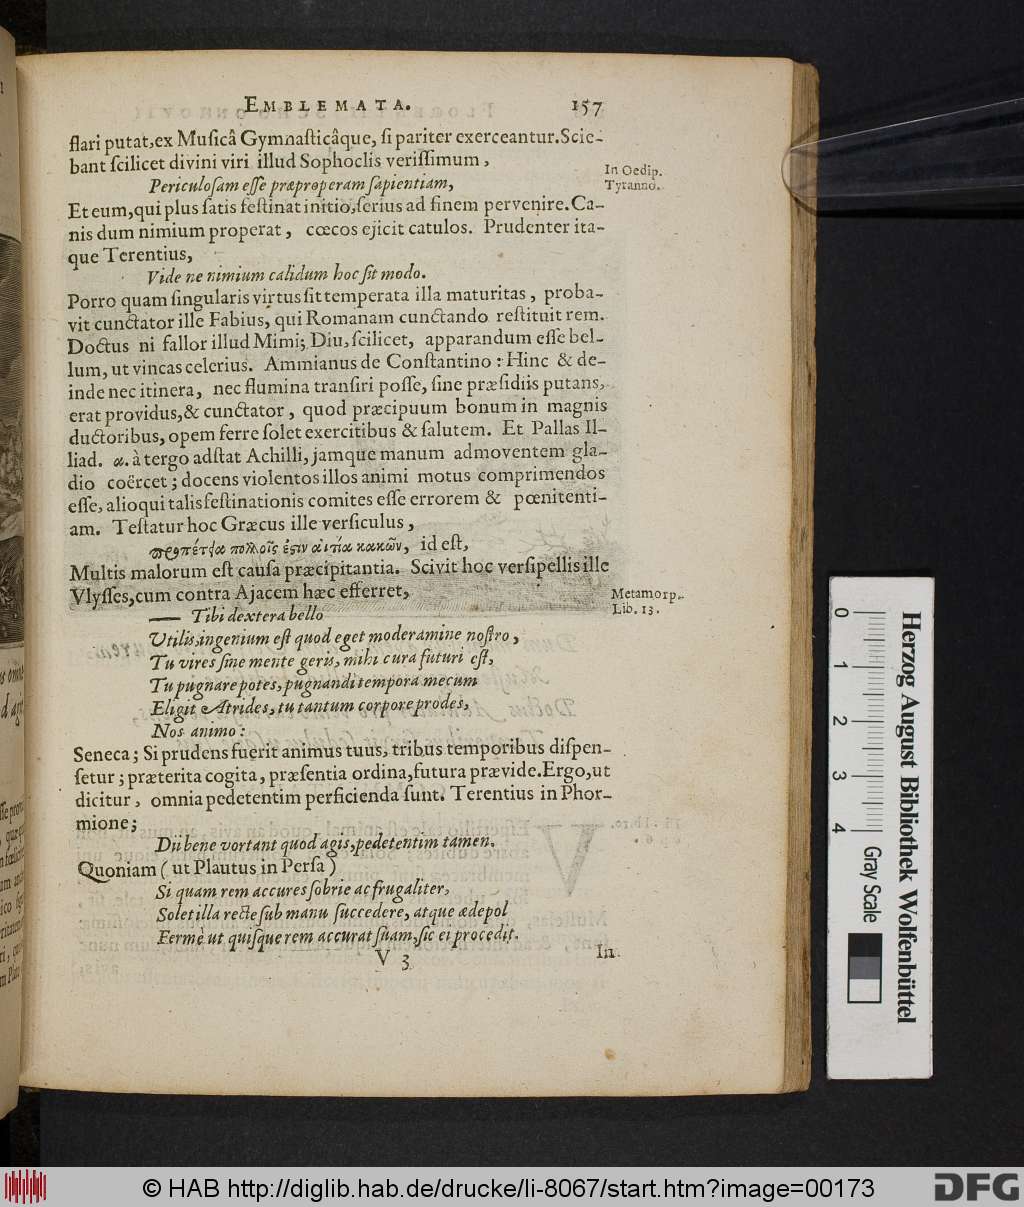 EMBLEMATA. 157
flari putat, ex Musicâ Gymnasticâque, si pariter exerceantur. Scie-
bant scilicet divini viri illud Sophoclis verissimum,
In Oedip.
Tyranno.
Periculosam esse præproperam sapientiam,
Et eum, qui plus satis festinat initio, serius ad finem pervenire. Ca-
nis dum nimium properat, cœcos ejicit catulos. Prudenter ita-
que Terentius,
Vide ne nimium calidum hoc sit modo.
Porro quam singularis virtus sit temperata illa maturitas, proba-
vit cunctator ille Fabius, qui Romanam cunctando restituit rem.
Doctus ni fallor illud Mimi; Diu, scilicet, apparandum esse bel-
lum, ut vincas celerius. Ammianus de Constantino: Hinc & de-
inde nec itinera, nec flumina transiri posse, sine præsidiis putans,
erat providus, & cunctator, quod præcipuum bonum in magnis
ductoribus, opem ferre solet exercitibus & salutem. Et Pallas Il-
liad. α. à tergo adstat Achilli, jamque manum admoventem gla-
dio coërcet; docens violentos illos animi motus comprimendos
esse, alioqui talis festinationis comites esse errorem & pœnitenti-
am. Testatur hoc Græcus ille versiculus,
προπέτεια πολλοῖς ἐστιν αἰτία κακῶν, id est,
Multis malorum est causa præcipitantia. Scivit hoc versipellis ille
Vlysses, cum contra Ajacem hæc efferret,
Metamorp.
Lib. 13.
— Tibi dextera bello
Utilis, ingenium est quod eget moderamine nostro,
Tu vires sine mente geris, mihi cura futuri est,
Tu pugnare potes, pugnandi tempora mecum
Eligit Atrides, tu tantum corpore prodes,
Nos animo:
Seneca; Si prudens fuerit animus tuus, tribus temporibus dispen-
setur; præterita cogita, præsentia ordina, futura prævide. Ergo, ut
dicitur, omnia pedetentim perficienda sunt. Terentius in Phor-
mione;
Dii bene vortant quod agis, pedetentim tamen.
Quoniam (ut Plautus in Persa)
Si quam rem accures sobrie ac frugaliter,
Solet illa recte sub manu succedere, atque ædepol
Fermè ut quisque rem accurat suam, sic ei procedit.
V 3 In
0 1 2 3 4
Herzog August Bibliothek Wolfenbüttel
Gray Scale
© HAB http://diglib.hab.de/drucke/li-8067/start.htm?image=00173
DFG